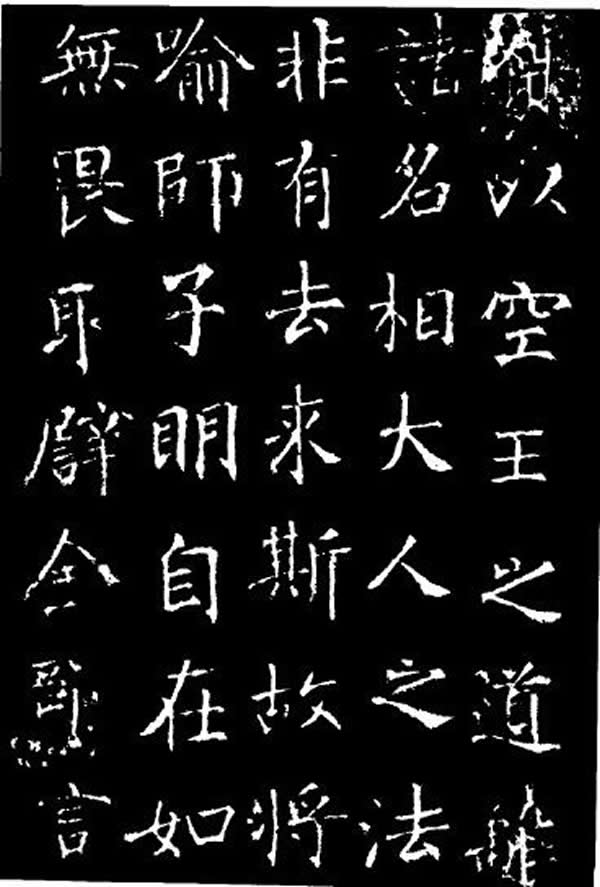 以空王之道離
諸名相大人之法
非有去来斯故將
喻師子明自在如
無畏取譬金剛言